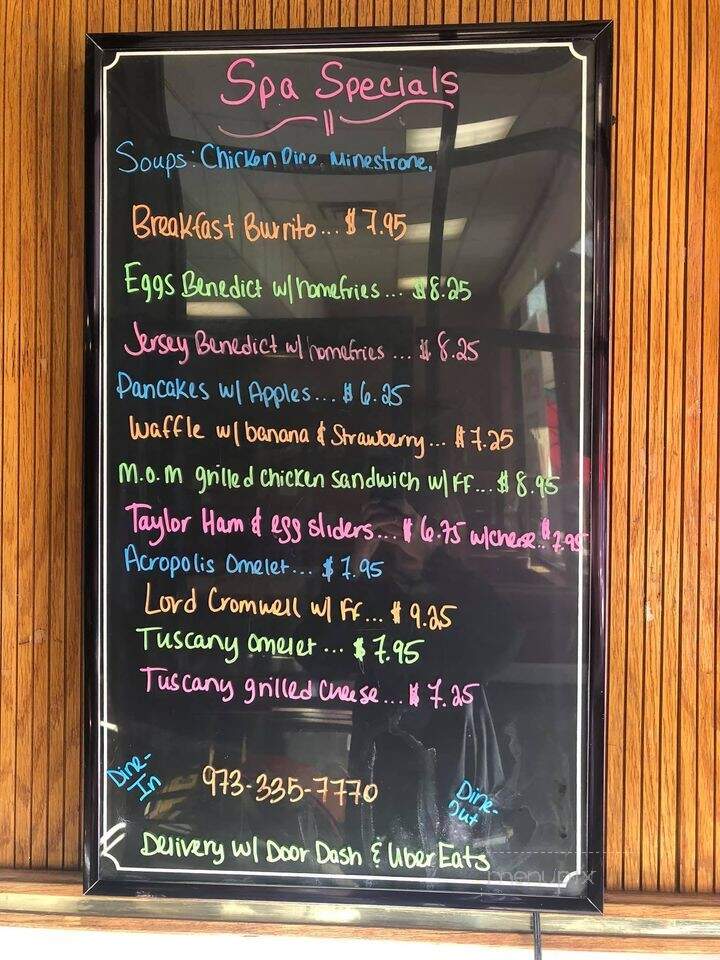 Spa Specials
Soups: Chicken Rice, Minestrone,
Breakfast Burrito... $7.95
Eggs Benedict w/ homefries... $8.25
Jersey Benedict w/ homefries ... $8.25
Pancakes w/ Apples... $6.25
Waffle w/ banana & Strawberry... $7.25
M.O.M grilled chicken sandwich w/ FF... $8.95
Taylor Ham & egg sliders... $6.75 w/cheese.. $7.95
Acropolis Omelet... $7.95
Lord Cromwell w/ FF... $9.25
Tuscany Omelet ... $7.95
Tuscany grilled Cheese... $7.25
Dine-
In
973-335-7770
Dine-
Out
Delivery w/ Door Dash & Uber Eats
menupix